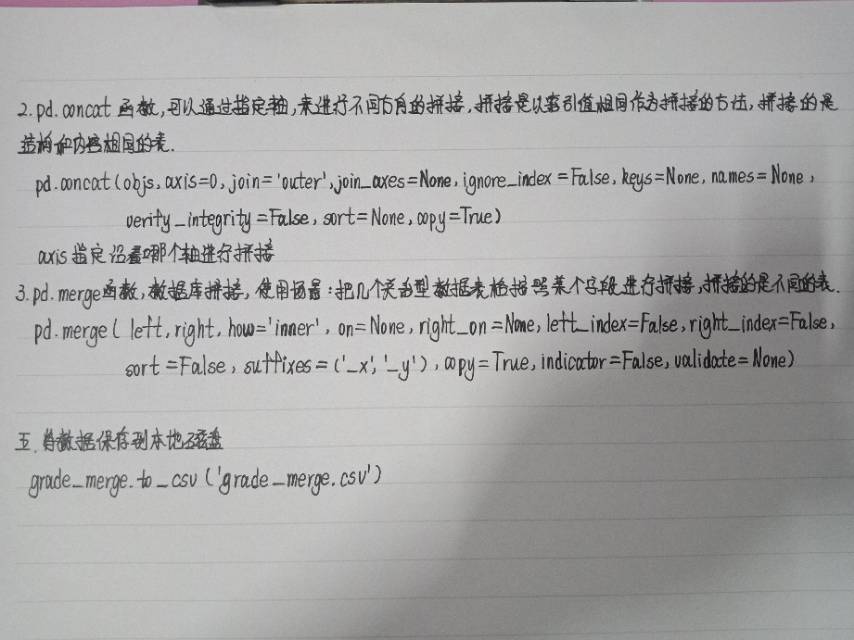 2.pd.concat 函数,可以通过指定轴,来进行不同方向的拼接.拼接是以索引值相同作为拼接的方法,拼接的是
结构和内容相同的表.
pd.concat(objs,axis=0,join='outer',join_axes=None,ignore_index=False,keys=None,names=None,
verify_integrity=False,sort=None,copy=True)
axis指定沿着哪个轴进行拼接
3.pd.merge函数,数据库拼接,使用场景:把几个关系型数据表格按照某个字段进行拼接,拼接的是不同的表.
pd.merge(left,right,how='inner',on=None,right_on=None,left_index=False,right_index=False,
sort=False,suffixes=('_x','_y'),copy=True,indicator=False,validate=None)
五.将数据保存到本地磁盘
grade_merge.to_csv('grade_merge.csv')